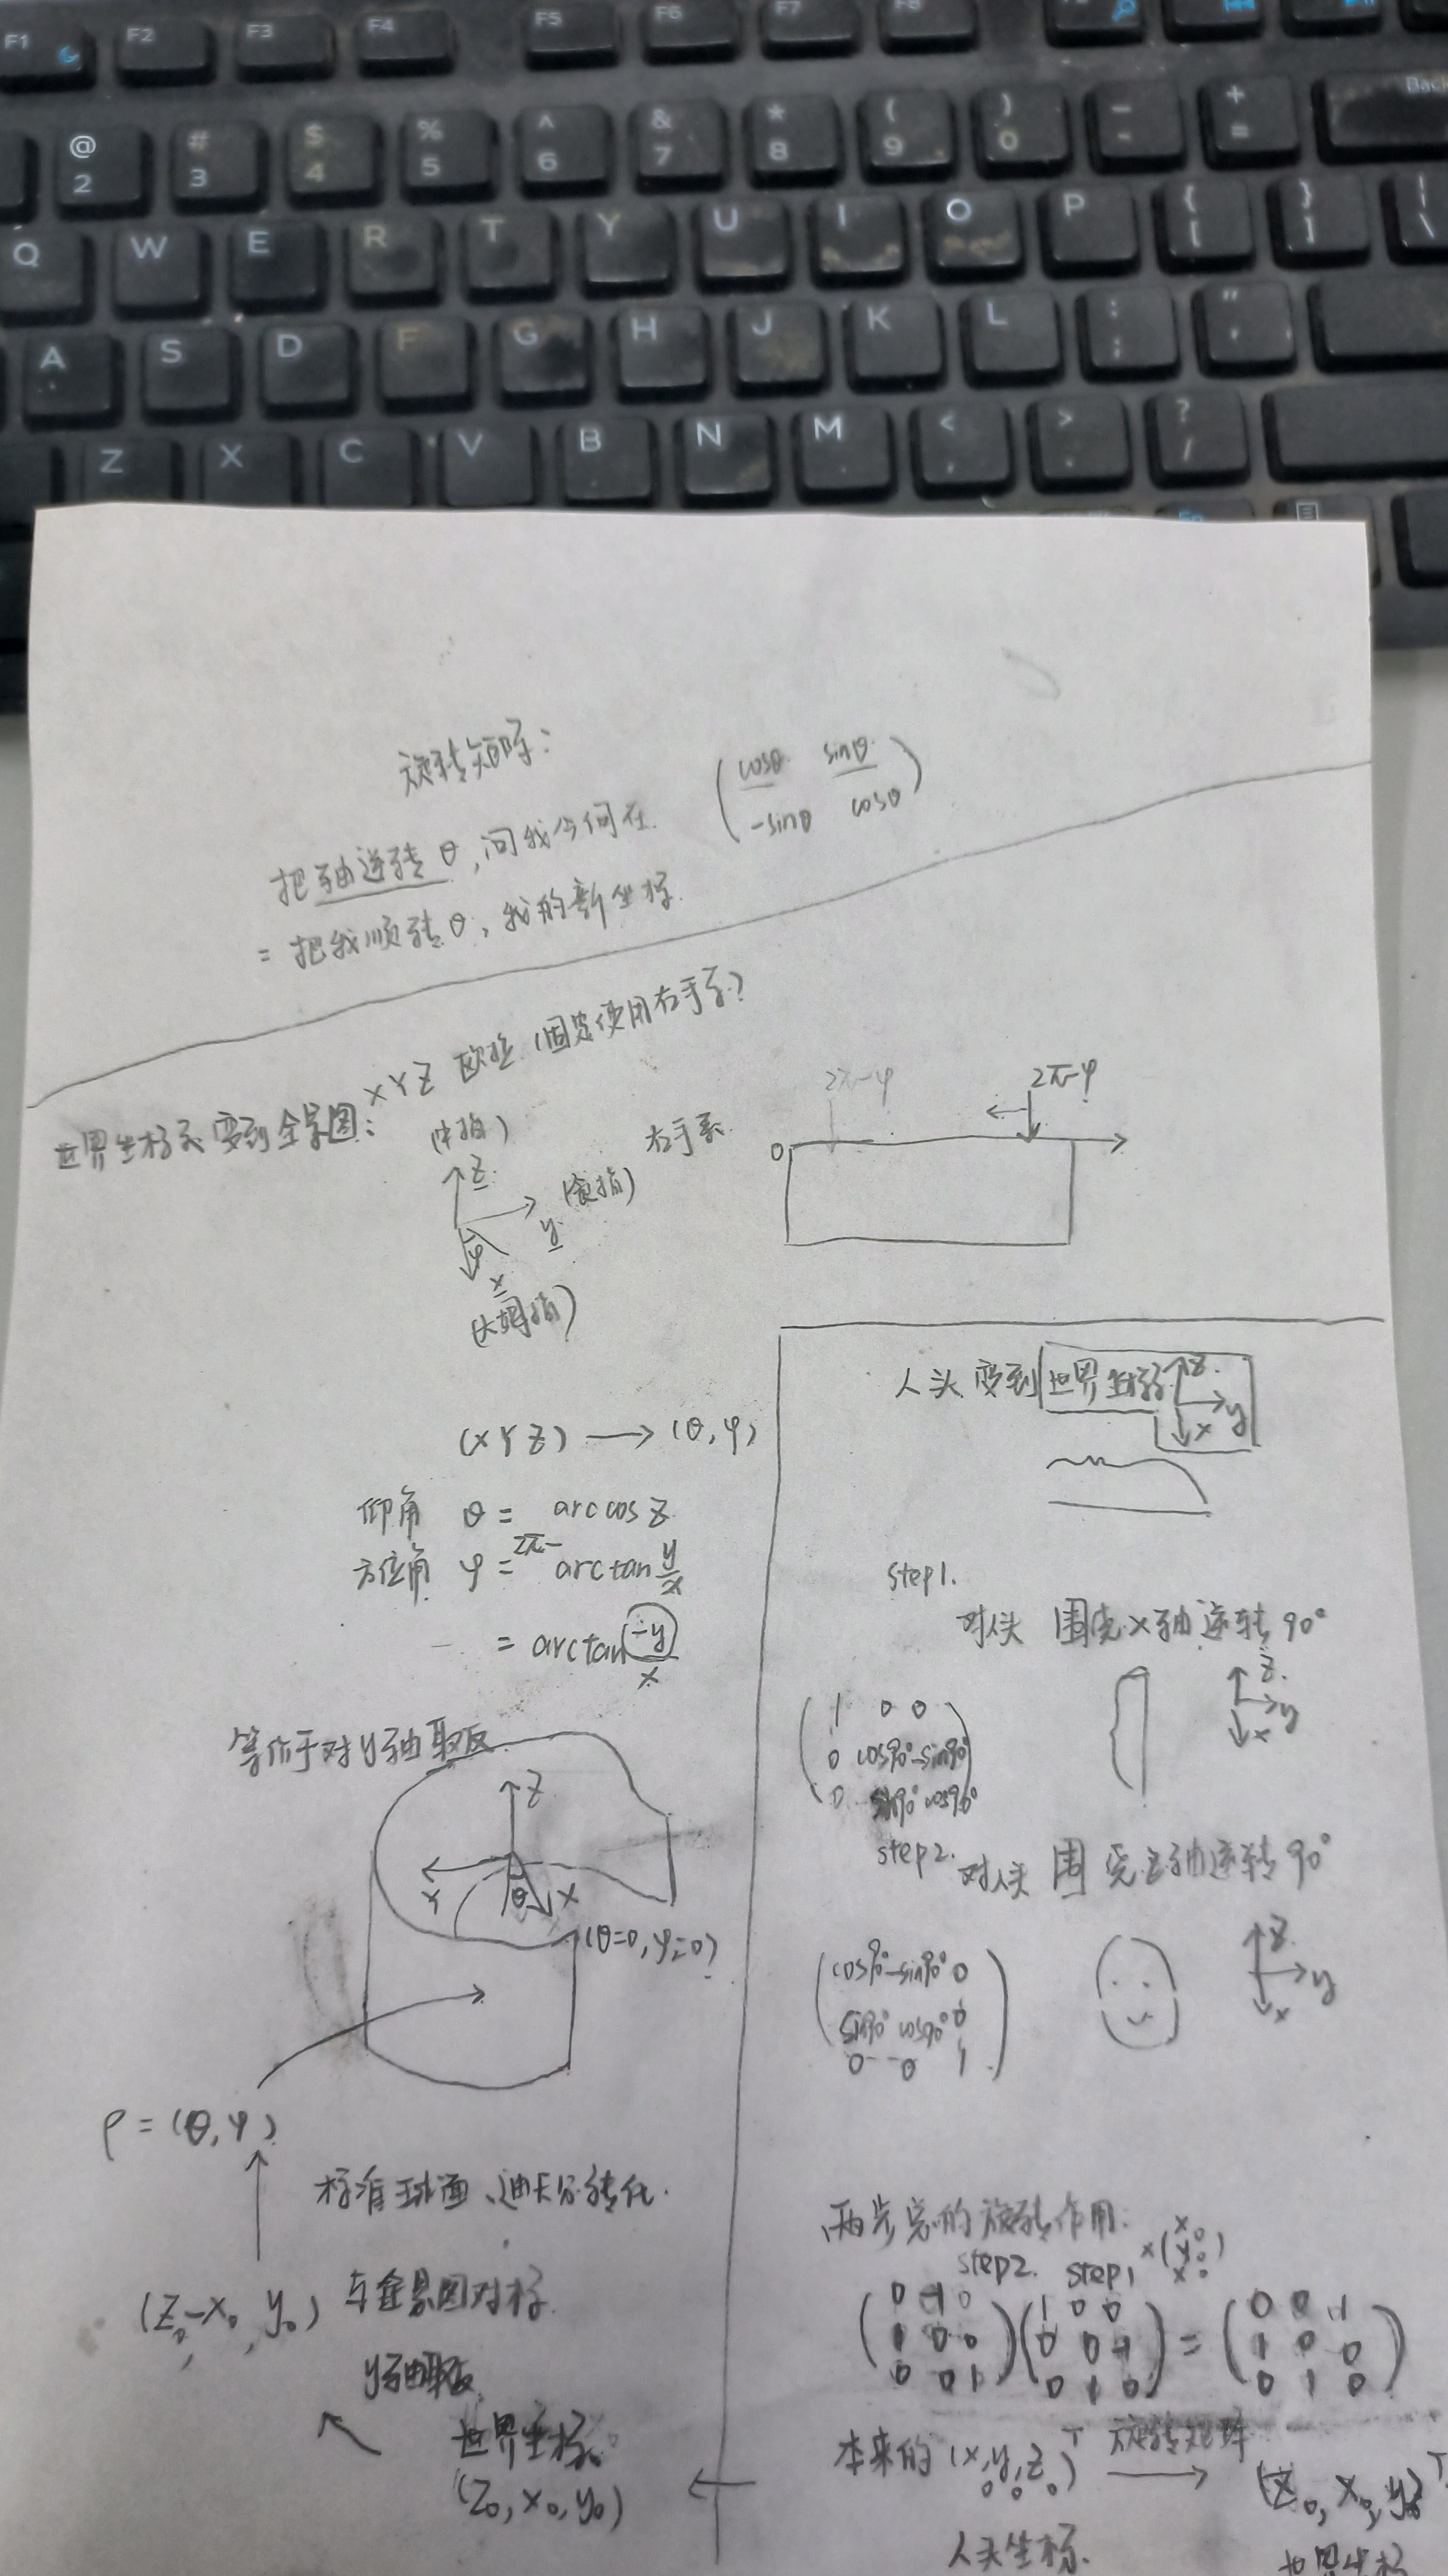 F1 F2 F3 F4 F5 F6 F7 F8
@ 2 # 3 $ 4 % 5 ^ 6 & 7 * 8 ( 9 ) 0 _ - + = Back
Q W E R T Y U I O P { [ } ] | \
A S D F G H J K L : ; " '
Z X C V B N M < , > . ? /
旋转矩阵:
把轴逆转θ,问我今何在.
(cosθ sinθ
-sinθ cosθ)
= 把我顺转θ,我的新坐标.
XYZ 欧拉 (固定使用右手系?)
世界坐标系变到全景图:
(中指)
z
(食指)
y
φ
x
(大拇指)
右手系.
2π-φ
2π-φ
0
(XYZ) → (θ,φ)
仰角 θ = arccos z
方位角 φ = 2π- arctan y/x
= arctan -y/x
等价于对y轴取反
Z
Y
θ
X
(θ=0, φ=0)
ρ = (θ,φ)
标准球面、迪卡尔转化.
(Z₀, -X₀, y₀) 与全景图对标
y轴取反
世界坐标
(Z₀, X₀, y₀)
人头变到世界坐标
z
y
x
step1.
对人头 围绕x轴逆转90°
(1 0 0
0 cos90° -sin90°
0 sin90° cos90°)
z
y
x
step2.
对人头 围绕z轴逆转90°
(cos90° -sin90° 0
sin90° cos90° 0
0 0 1)
z
y
x
两步总的旋转作用:
step2. step1
(0 -1 0
1 0 0
0 0 1)
(1 0 0
0 0 -1
0 1 0)
=
(0 0 1
1 0 0
0 1 0)
本来的 (x₀,y₀,z₀)ᵀ 旋转矩阵 → (Z₀, X₀, y₀)ᵀ
人头坐标.
世界坐标